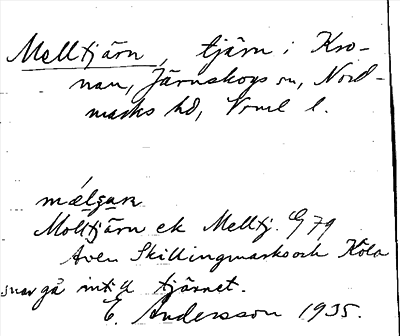 Melltjärn, tjärn i Kro-
nan, Järnskogs sn, Nord-
marks hd, Vrml l.
mælgan
Molltjärn ek Melltj. G 79
Även Skillingmarks och Köla
snar gå intill tjärnet.
E. Andersson 1935.